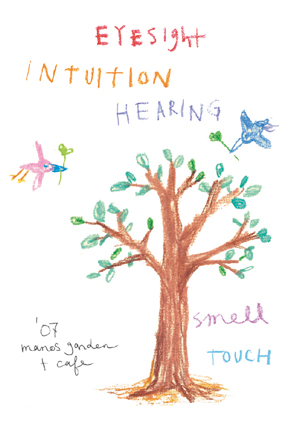 EYESight
INTUITION
HEARING
smell
TOUCH
'07
manos garden
+ cafe